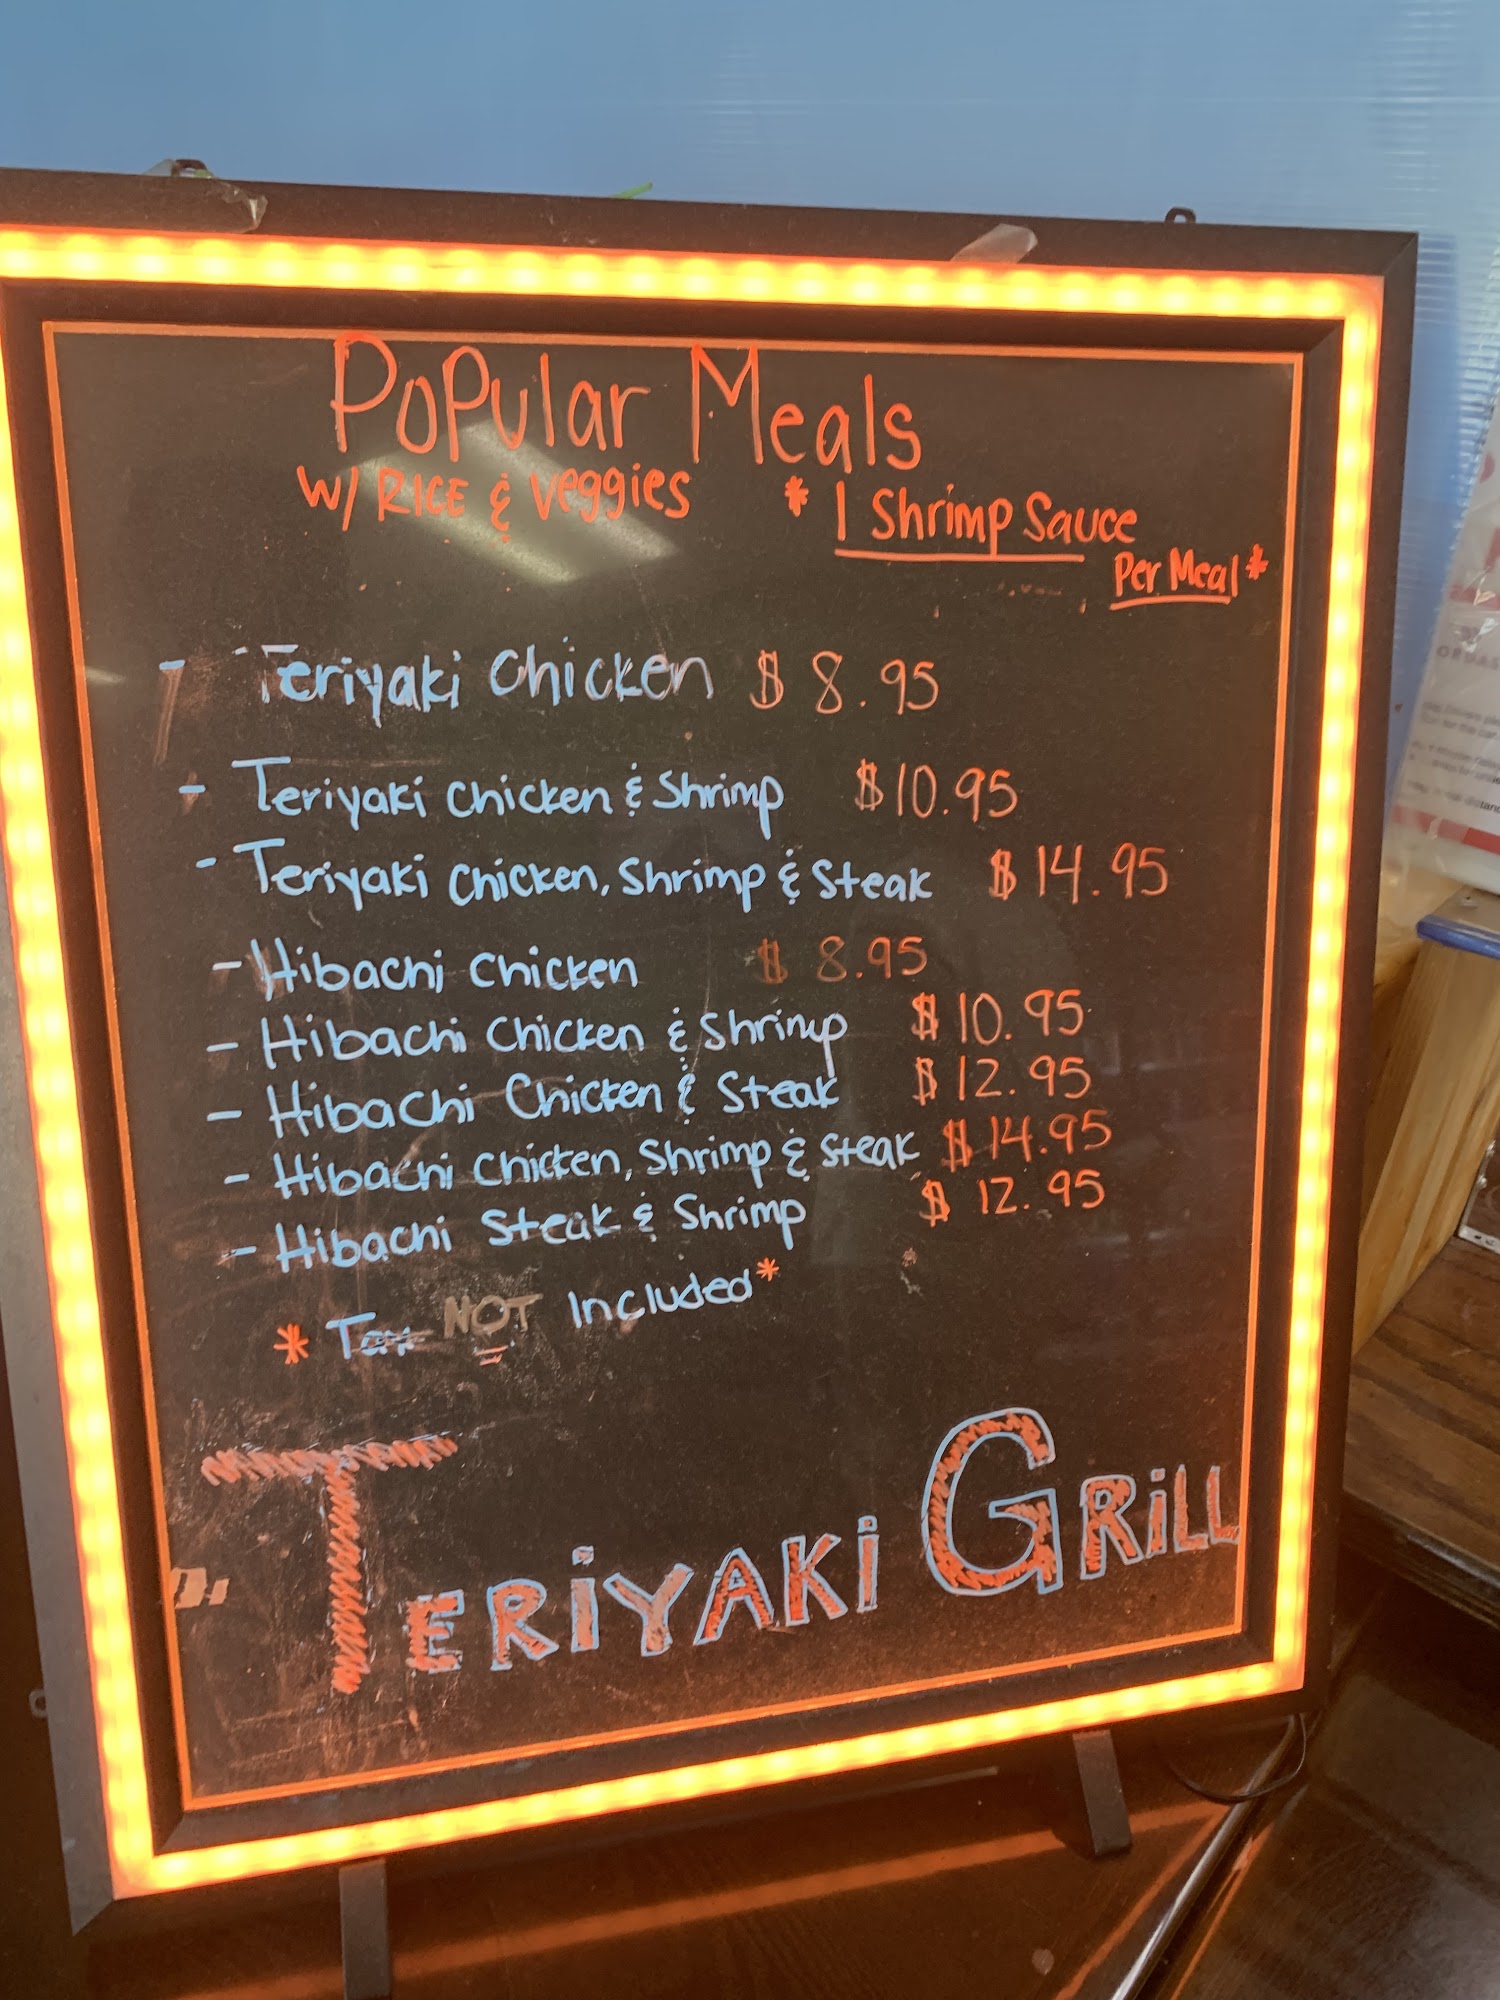 Popular Meals
W/ RICE & veggies * 1 Shrimp Sauce
Per Meal *
- Teriyaki Chicken $ 8.95
- Teriyaki Chicken & Shrimp $10.95
- Teriyaki Chicken, Shrimp & Steak $ 14.95
- Hibachi Chicken $ 8.95
- Hibachi Chicken & Shrimp $ 10.95
- Hibachi Chicken & Steak $ 12.95
- Hibachi Chicken, Shrimp & Steak $ 14.95
- Hibachi Steak & Shrimp $ 12.95
* Tax NOT Included *
TERiYAKi GRiLL